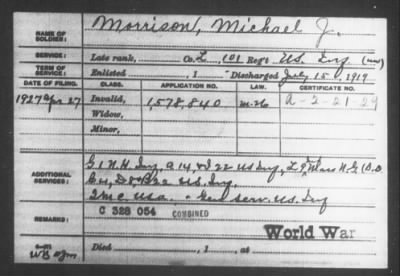 NAME OF SOLDIER: Morrison, Michael J.
SERVICE: Late rank, Co. L, 101 Reg't U.S. Inf.
TERM OF SERVICE: Enlisted , 1 Discharged July 15, 1919
DATE OF FILING. CLASS. APPLICATION NO. LAW. CERTIFICATE NO.
1927 Apr 27 Invalid, 1,578,840 A-2-21-29
Widow,
Minor,
G 1 N.H. Inf, A 14, & I 22 US Inf, L 9 Mass N.G.
ADDITIONAL SERVICES: U.S. Inf.
Q.M.C. U.S.A. Gen. Serv. U.S. Inf
C 328 054 COMBINED
REMARKS: World War
Died , 1 , at